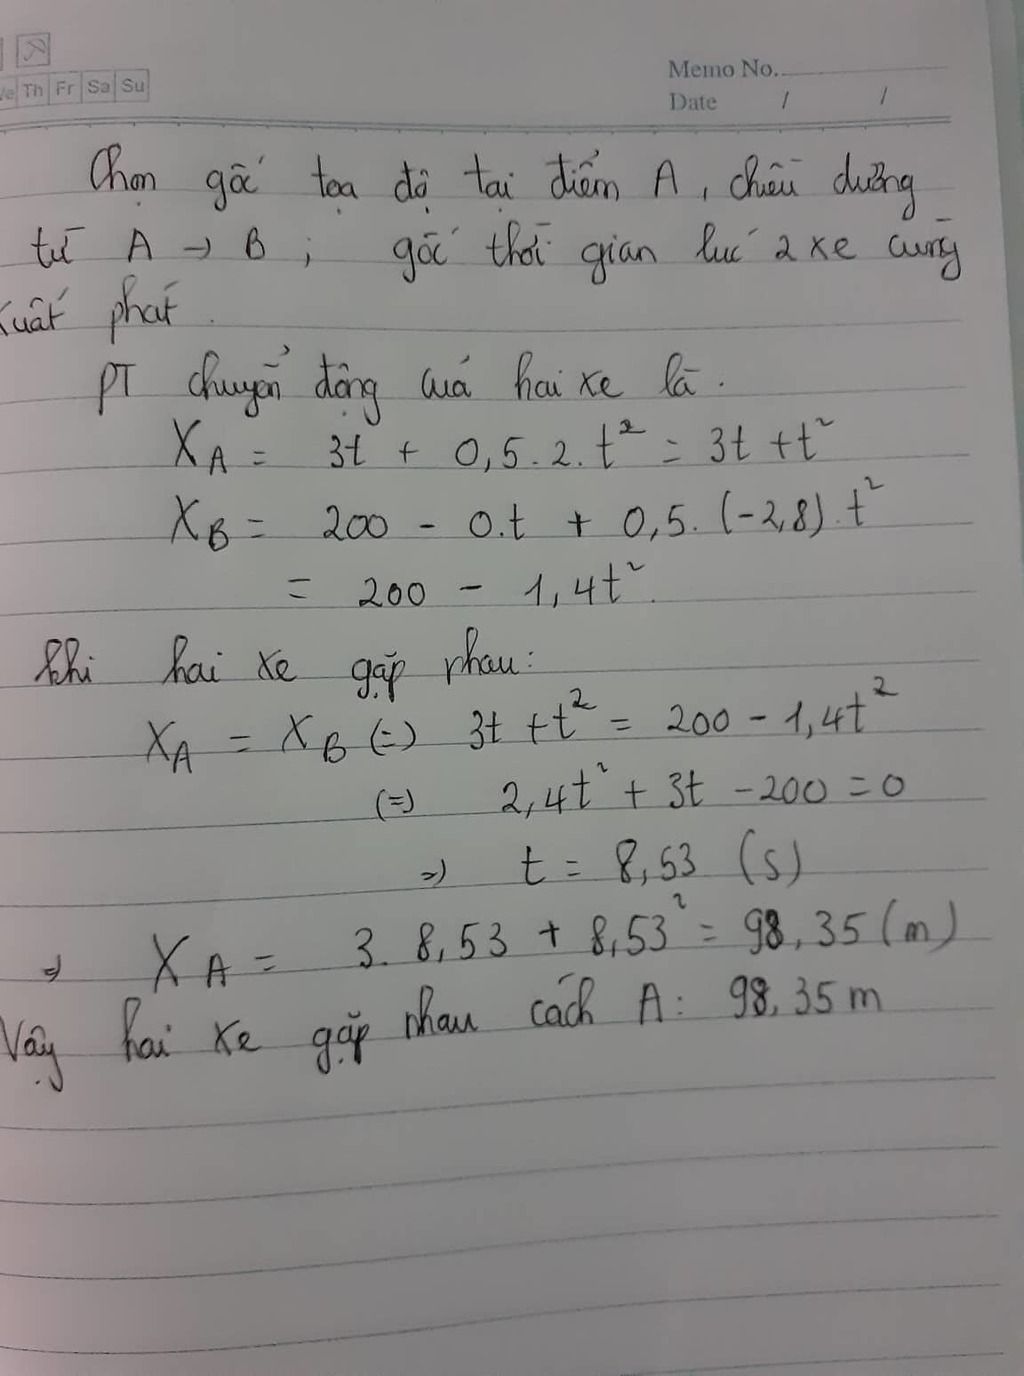 Memo No.
Th Fr Sa Su
Date / /
Chọn gốc tọa độ tại điểm A, chiều dương
từ A → B ; gốc thời gian lúc 2 xe cùng
xuất phát.
PT chuyển động của hai xe là.
X_A = 3t + 0,5.2.t² = 3t + t²
X_B = 200 - 0.t + 0,5.(-2,8).t²
= 200 - 1,4t².
Khi hai xe gặp nhau:
X_A = X_B (=) 3t + t² = 200 - 1,4t²
(=) 2,4t² + 3t - 200 = 0
=) t = 8,53 (s)
=) X_A = 3. 8,53 + 8,53² = 98,35 (m)
Vậy hai xe gặp nhau cách A: 98,35 m